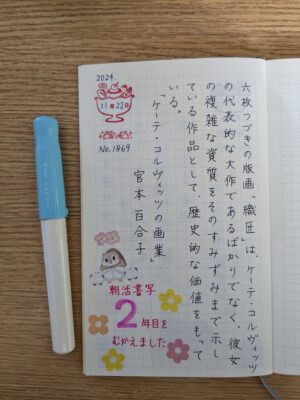 2024.
11月22日
No.1869
六枚つづきの版画「織匠」は、ケーテ・コルヴィッツ
の代表的な大作であるばかりでなく、彼女
の複雑な資質をそのすみずみまで示し
ている作品として、歴史的な価値をもって
いる。
「ケーテ・コルヴィッツの画業」
宮本百合子
朝活書写
2年目を
むかえました